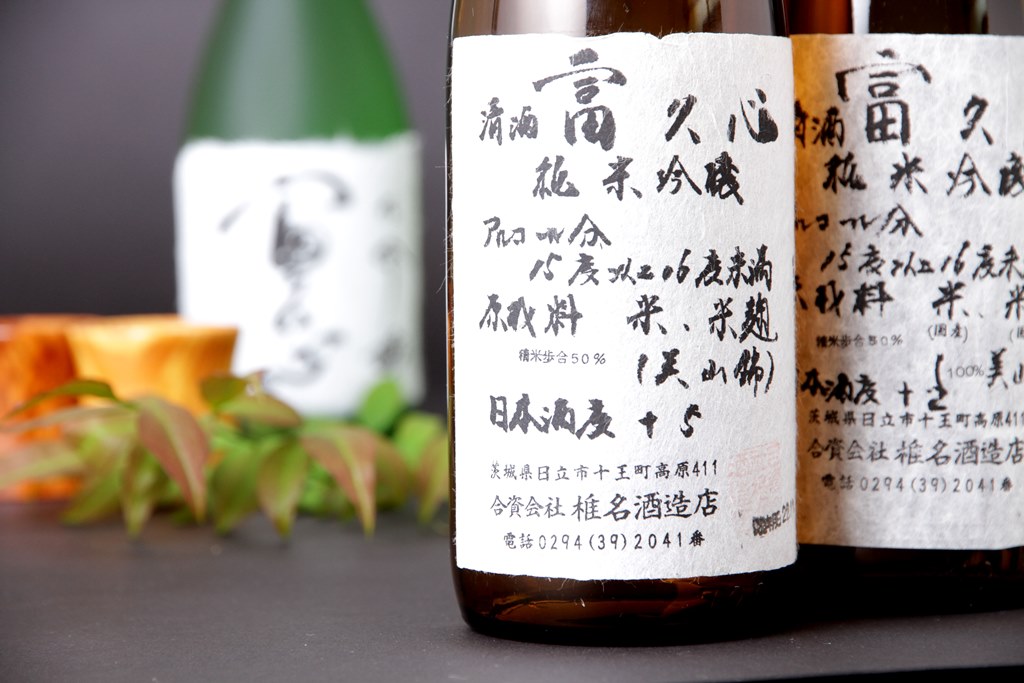 清酒 富久心
純米吟醸
アルコール分
15度以上16度未満
原材料 米、米麹
精米歩合50%
(美山錦)
日本酒度 +5
茨城県日立市十王町高原411
合資会社 椎名酒造店
電話0294(39)2041番
清酒 富久
純米吟醸
アルコール分
15度以上16度未
原材料 米、米
(国産)
精米歩合50%
100%美山
日本酒度 +2
茨城県日立市十王町高原411
合資会社 椎名酒造店
電話0294(39)2041番